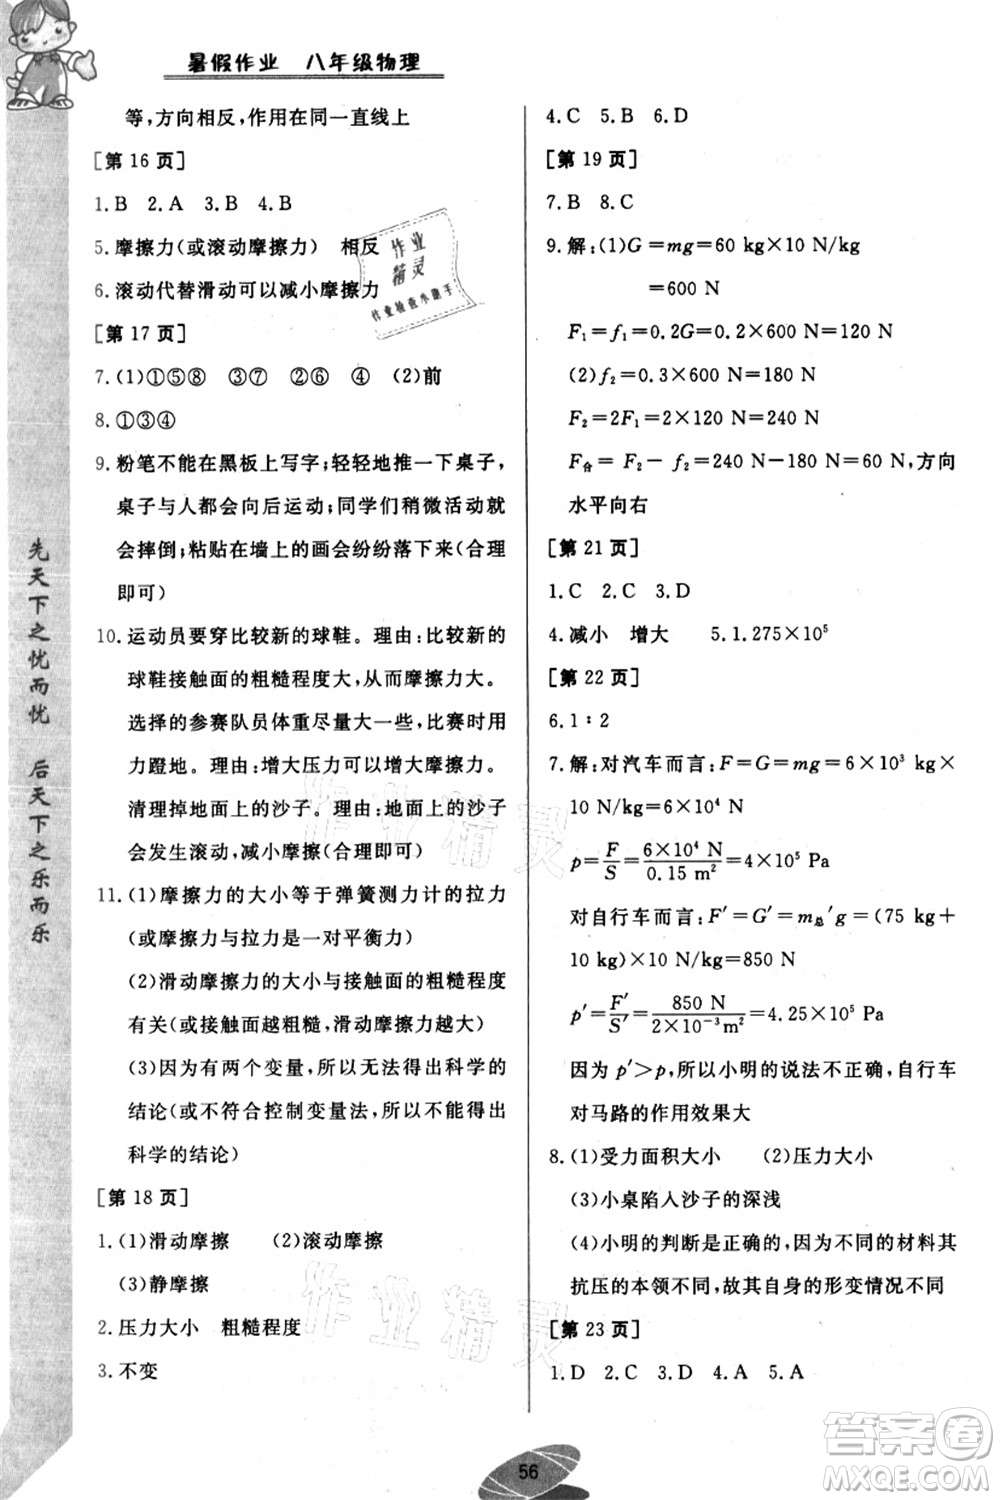 暑假作业 八年级物理
等,方向相反,作用在同一直线上
[第 16 页]
1.B 2.A 3.B 4.B
5.摩擦力(或滚动摩擦力) 相反
6.滚动代替滑动可以减小摩擦力
[第 17 页]
7.(1)①⑤⑧ ③⑦ ②⑥ ④ (2)前
8.①③④
9.粉笔不能在黑板上写字;轻轻地推一下桌子,
桌子与人都会向后运动;同学们稍微活动就
会摔倒;粘贴在墙上的画会纷纷落下来(合理
即可)
10.运动员要穿比较新的球鞋。理由:比较新的
球鞋接触面的粗糙程度大,从而摩擦力大。
选择的参赛队员体重尽量大一些,比赛时用
力蹬地。理由:增大压力可以增大摩擦力。
清理掉地面上的沙子。理由:地面上的沙子
会发生滚动,减小摩擦(合理即可)
11.(1)摩擦力的大小等于弹簧测力计的拉力
(或摩擦力与拉力是一对平衡力)
(2)滑动摩擦力的大小与接触面的粗糙程度
有关(或接触面越粗糙,滑动摩擦力越大)
(3)因为有两个变量,所以无法得出科学的
结论(或不符合控制变量法,所以不能得出
科学的结论)
[第 18 页]
1.(1)滑动摩擦 (2)滚动摩擦
(3)静摩擦
2.压力大小 粗糙程度
3.不变
4.C 5.B 6.D
[第 19 页]
7.B 8.C
9.解:(1)G=mg=60 kg×10 N/kg
=600 N
F₁=f₁=0.2G=0.2×600 N=120 N
(2)f₂=0.3×600 N=180 N
F₂=2F₁=2×120 N=240 N
F合=F₂-f₂=240 N-180 N=60 N,方向
水平向右
[第 21 页]
1.C 2.C 3.D
4.减小 增大 5.1.275×10⁵
[第 22 页]
6.1∶2
7.解:对汽车而言:F=G=mg=6×10³ kg×
10 N/kg=6×10⁴ N
p=F/S=6×10⁴ N/0.15 m²=4×10⁵ Pa
对自行车而言:F′=G′=m总′g=(75 kg+
10 kg)×10 N/kg=850 N
p′=F′/S′=850 N/2×10⁻³m²=4.25×10⁵ Pa
因为 p′>p,所以小明的说法不正确,自行车
对马路的作用效果大
8.(1)受力面积大小 (2)压力大小
(3)小桌陷入沙子的深浅
(4)小明的判断是正确的,因为不同的材料其
抗压的本领不同,故其自身的形变情况不同
[第 23 页]
1.D 2.C 3.D 4.A 5.A
先天下之忧而忧 后天下之乐而乐
作业
精灵
作业检查小助手
作业精灵
作业精灵
56
答案圈
MXQE.COM